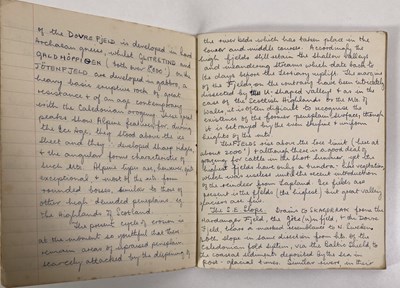 of the DOVRE FJELD is developed in hard
Archaean gneiss, whilst GLITRETIND and
GALDHÖPPIGEN (both over 8000') on the
JÖTENFJELD are developed in gabbro, a
heavy basic eruptive rock of great
resistance & of an age contemporary
with the Caledonian orogeny. These great
peaks show Alpine features, for, during
the Ice Age, they stood above the ice
sheet and they developed sharp edges
& the angular forms characteristic of
such Mts. Alpine type are, however, quite
exceptional & most of the mts form
rounded bosses, similar to those of
other high denuded peneplains, eg
the Highlands of Scotland.
The present cycle of erosion is
at the moment so youthful that there
remain areas of upraised peneplain
scarcely attacked by the deepening of
the river beds which has taken place in the
lower and middle courses. Accordingly the
high fjelds still retain the shallow valleys
and meandering streams which date back to
the days before the Tertiary uplift. The margins
of the Fjelds on the contrary have been intricately
dissected by the U-shaped valleys & as in the
case of the Scottish Highlands or the Mts. of
Wales it is often difficult to recognise the
existence of the former peneplain surfaces, though
it is betrayed by the even shapes & uniform
heights of the mts.
The FJELDS rise above the tree limit (here at
about 3000') & although there is good
grazing for cattle in the short summer, yet the
highest fjelds have only a tundra-like vegetation
which was useless until the recent introduction
of the reindeer from Lapland. Ice fields are
present in the fjelds (the highest) but great valley
glaciers are few.
The S.E. slopes. Drains to SKAGERRAK from the
Hardanger Fjeld, the Jöte(n)fjeld, & the Dovre
Fjeld, bears a marked resemblance to N. Sweden
both slope in same direction from the
Caledonian fold system, via the Baltic Shield, to
the coastal sediments deposited by the sea in
post-glacial times. Similar rivers in their